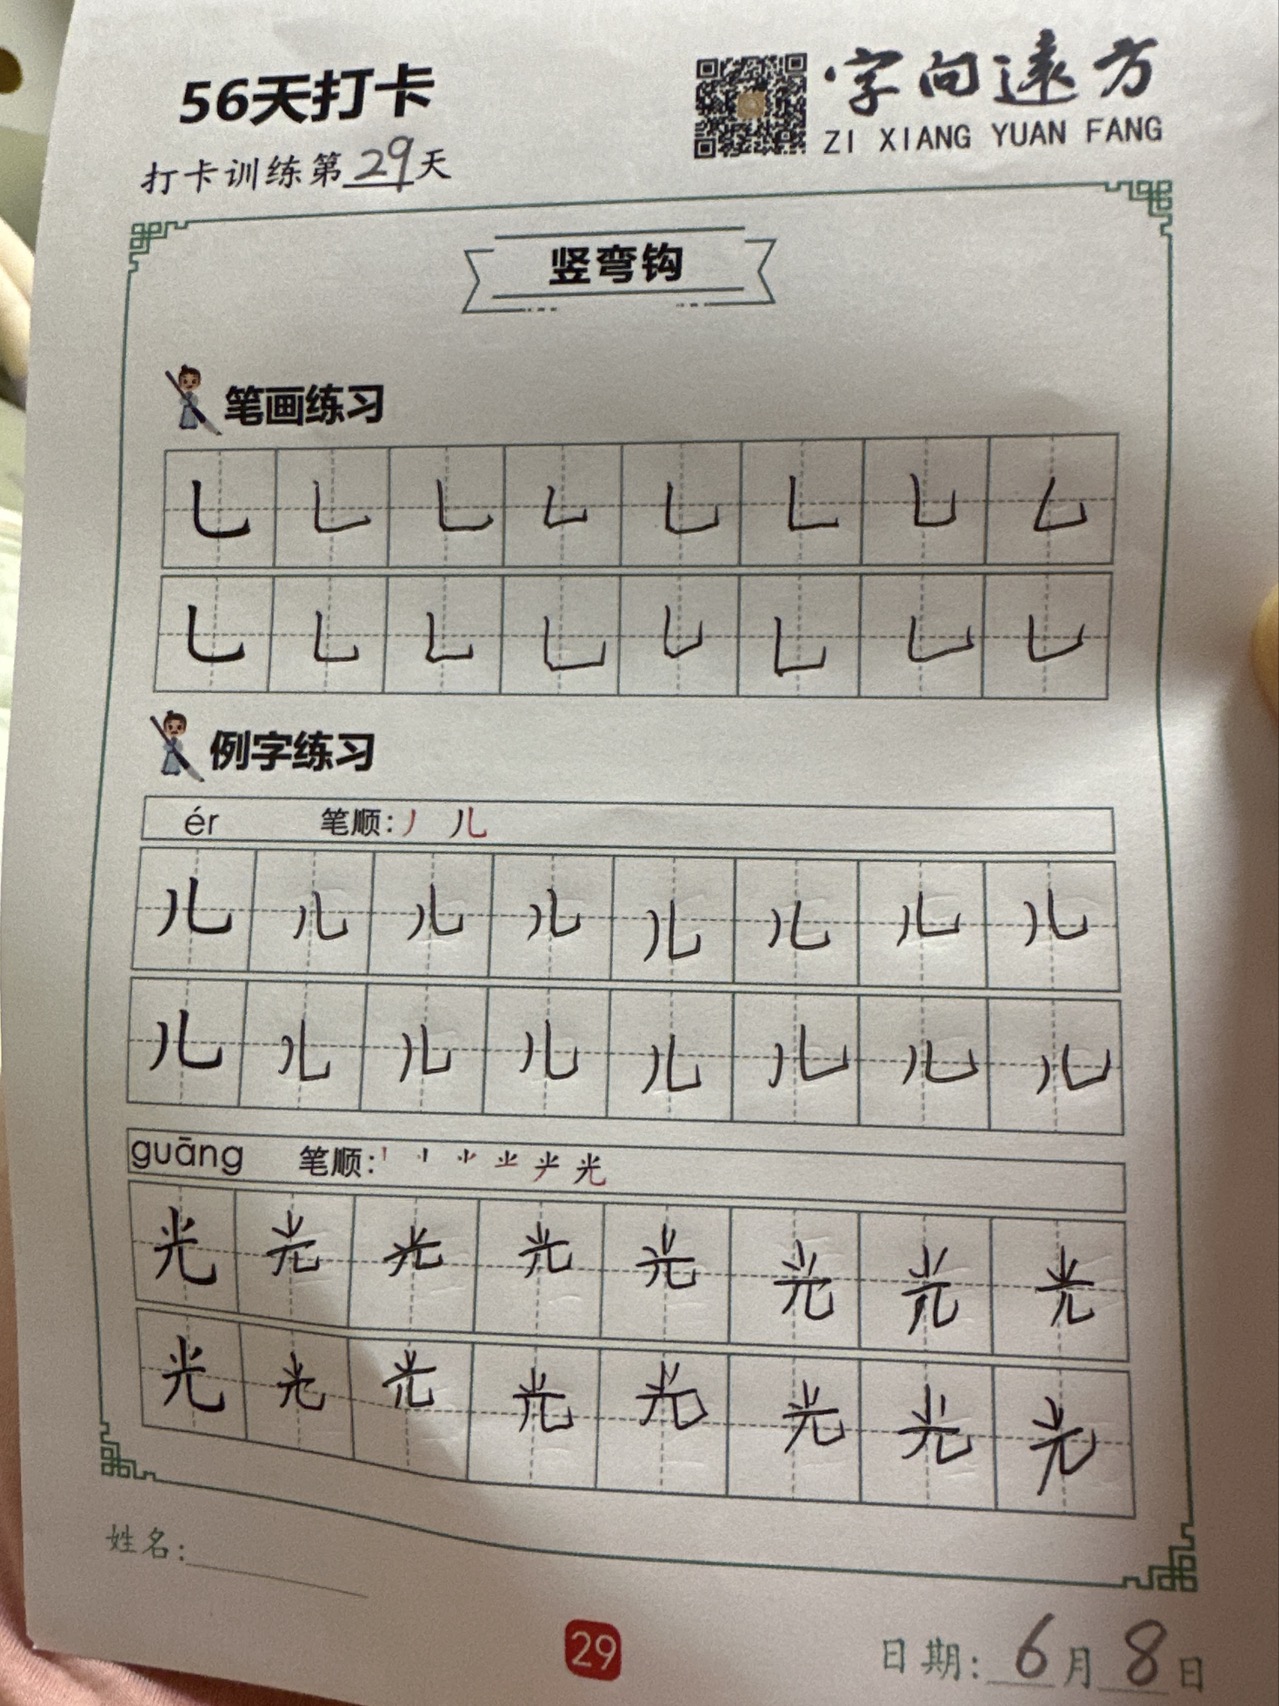 56天打卡
字向遠方
ZI XIANG YUAN FANG
打卡训练第29天
竖弯钩
笔画练习
㇄ ㇄ ㇄ ㇄ ㇄ ㇄ ㇄ ㇄
㇄ ㇄ ㇄ ㇄ ㇄ ㇄ ㇄ ㇄
例字练习
ér 笔顺:丿 儿
儿 儿 儿 儿 儿 儿 儿 儿
儿 儿 儿 儿 儿 儿 儿 儿
guāng 笔顺: 光
光 光 光 光 光 光 光 光
光 光 光 光 光 光 光 光
姓名:
29
日期: 6月8日